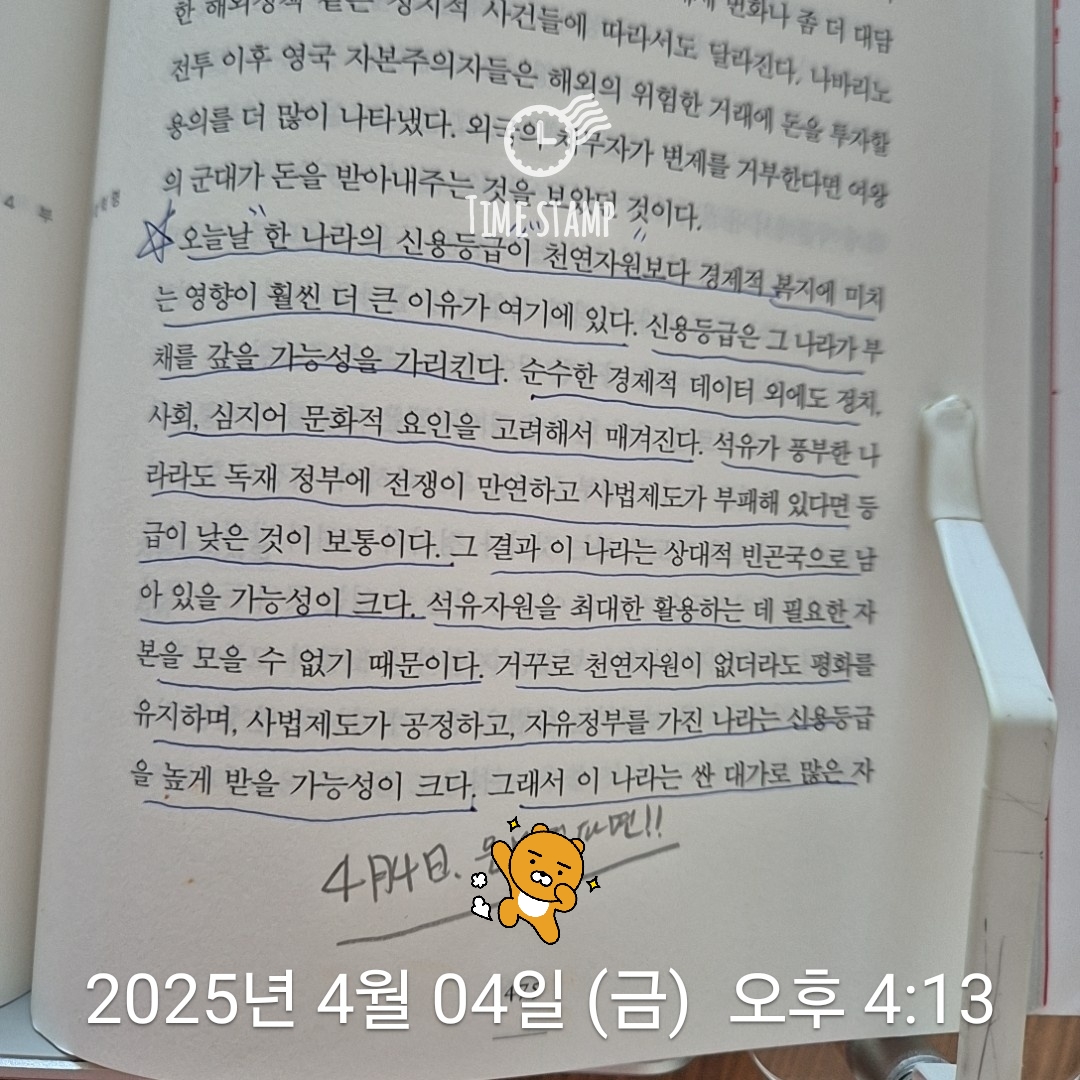 한 해외정책 같은 정치적 사건들에 따라서도 달라진다. 나바리노
변화나 좀 더 대담
전투 이후 영국 자본주의자들은 해외의 위험한 거래에 돈을 투자할
용의를 더 많이 나타냈다. 외국의 채무자가 변제를 거부한다면 여왕
의 군대가 돈을 받아내주는 것을 보았던 것이다.
TIMESTAMP
오늘날 한 나라의 신용등급이 천연자원보다 경제적 복지에 미치
는 영향이 훨씬 더 큰 이유가 여기에 있다. 신용등급은 그 나라가 부
채를 갚을 가능성을 가리킨다. 순수한 경제적 데이터 외에도 정치,
사회, 심지어 문화적 요인을 고려해서 매겨진다. 석유가 풍부한 나
라라도 독재 정부에 전쟁이 만연하고 사법제도가 부패해 있다면 등
급이 낮은 것이 보통이다. 그 결과 이 나라는 상대적 빈곤국으로 남
아 있을 가능성이 크다. 석유자원을 최대한 활용하는 데 필요한 자
본을 모을 수 없기 때문이다. 거꾸로 천연자원이 없더라도 평화를
유지하며, 사법제도가 공정하고, 자유정부를 가진 나라는 신용등급
을 높게 받을 가능성이 크다. 그래서 이 나라는 싼 대가로 많은 자
4月4日. 파면!!
2025년 4월 04일 (금) 오후 4:13
4 부